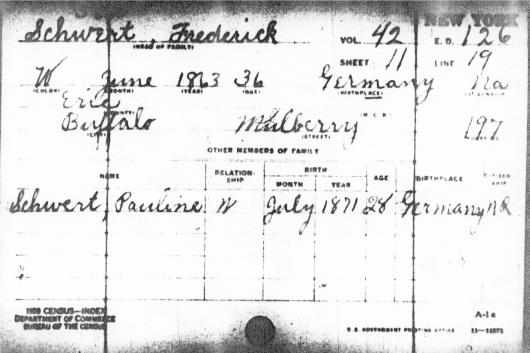 NEW YORK
Schwert, Frederick VOL. 42 E.D. 126
(HEAD OF FAMILY)
SHEET 11 LINE 19
W June 1863 36 Germany Na
(COLOR) (MONTH) (YEAR) (AGE) (BIRTHPLACE) (CITIZENSHIP)
Erie
(COUNTY) M.C.D.
Buffalo Mulberry 197
(CITY) (STREET)
OTHER MEMBERS OF FAMILY
NAME RELATION-SHIP BIRTH AGE BIRTHPLACE CITIZENSHIP
MONTH YEAR
Schwert, Pauline W July 1871 28 Germany NR
1900 CENSUS—INDEX A-1a
DEPARTMENT OF COMMERCE
BUREAU OF THE CENSUS U.S. GOVERNMENT PRINTING OFFICE